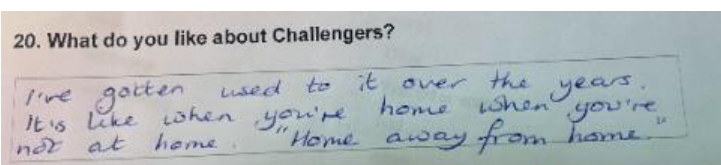 20. What do you like about Challengers?
I've gotten used to it over the years.
It's like when you're home when you're
not at home. "Home away from home"